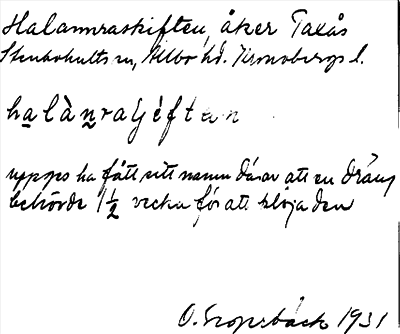 Halannraskiften, åker Taxås
Stenbrohults sn, Allbo hd. Kronobergs l.
halànraʃièftan
uppges ha fått sitt namn därav att en dräng
behövde 1½ vecka för att plöja den
O. 1931